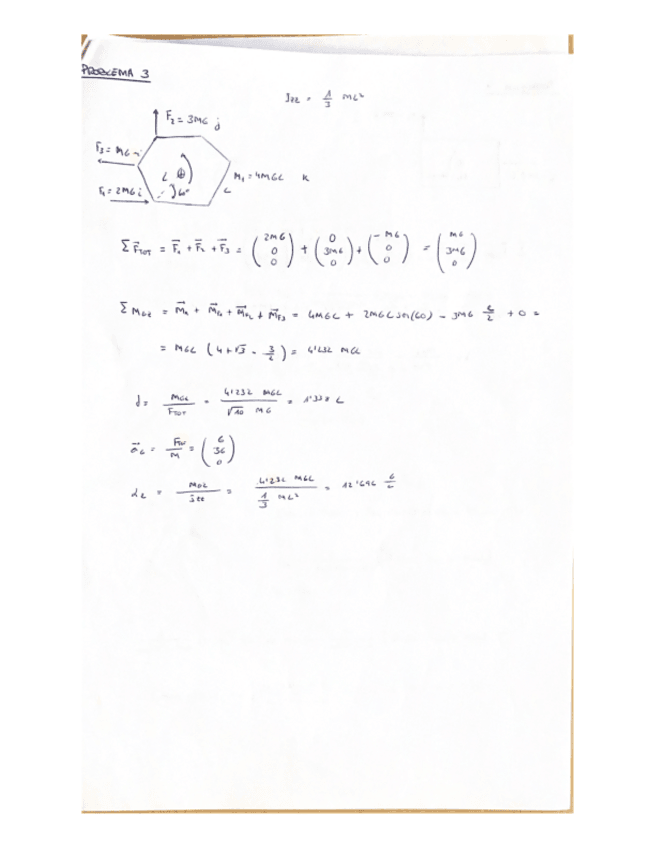 PROBLEMA 3
Izz = 1/3 ML²
F₂ = 3MG j
F₃ = MG -i
M₁ = 4MGL k
F₁ = 2MG i
L
60°
L
Σ F⃗TOT = F⃗₁ + F⃗₂ + F⃗₃ = (2MG 0 0) + (0 3MG 0) + (-MG 0 0) = (MG 3MG 0)
Σ MGZ = M⃗₁ + M⃗F₁ + M⃗F₂ + M⃗F₃ = 4MGL + 2MGL sen(60) - 3MG L/2 + 0 =
= MGL (4 + √3 - 3/2) = 4'232 MGL
d = MGZ/FTOT = 4'232 MGL/√10 MG = 1'338 L
a⃗G = FTOT/M = (G 3G 0)
αz = MGZ/Izz = 4'232 MGL/(1/3 ML²) = 12'696 G/L